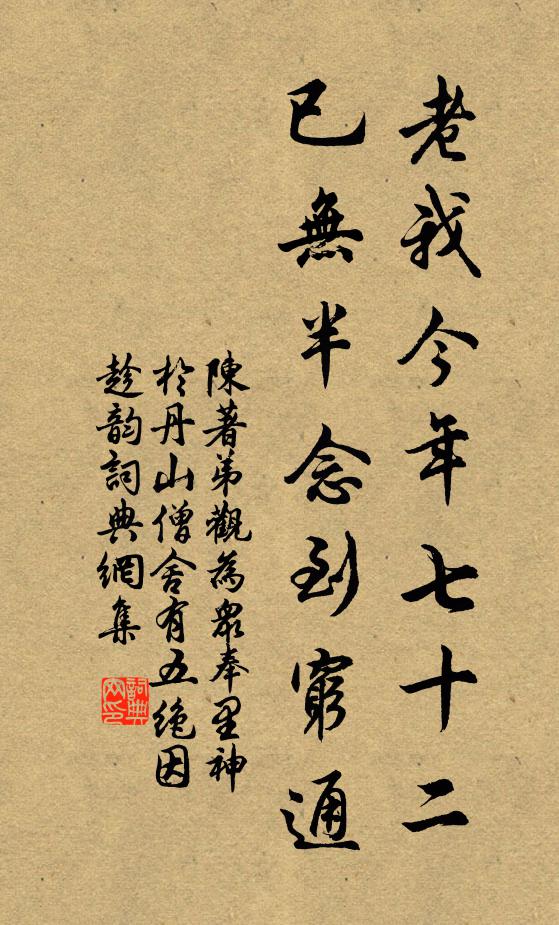 老我今年七十二
已無半念到窮通
陳著弟觀為衆奉里神
於丹山僧舍有五絶因
趁韵詞典網集
詞典
网印